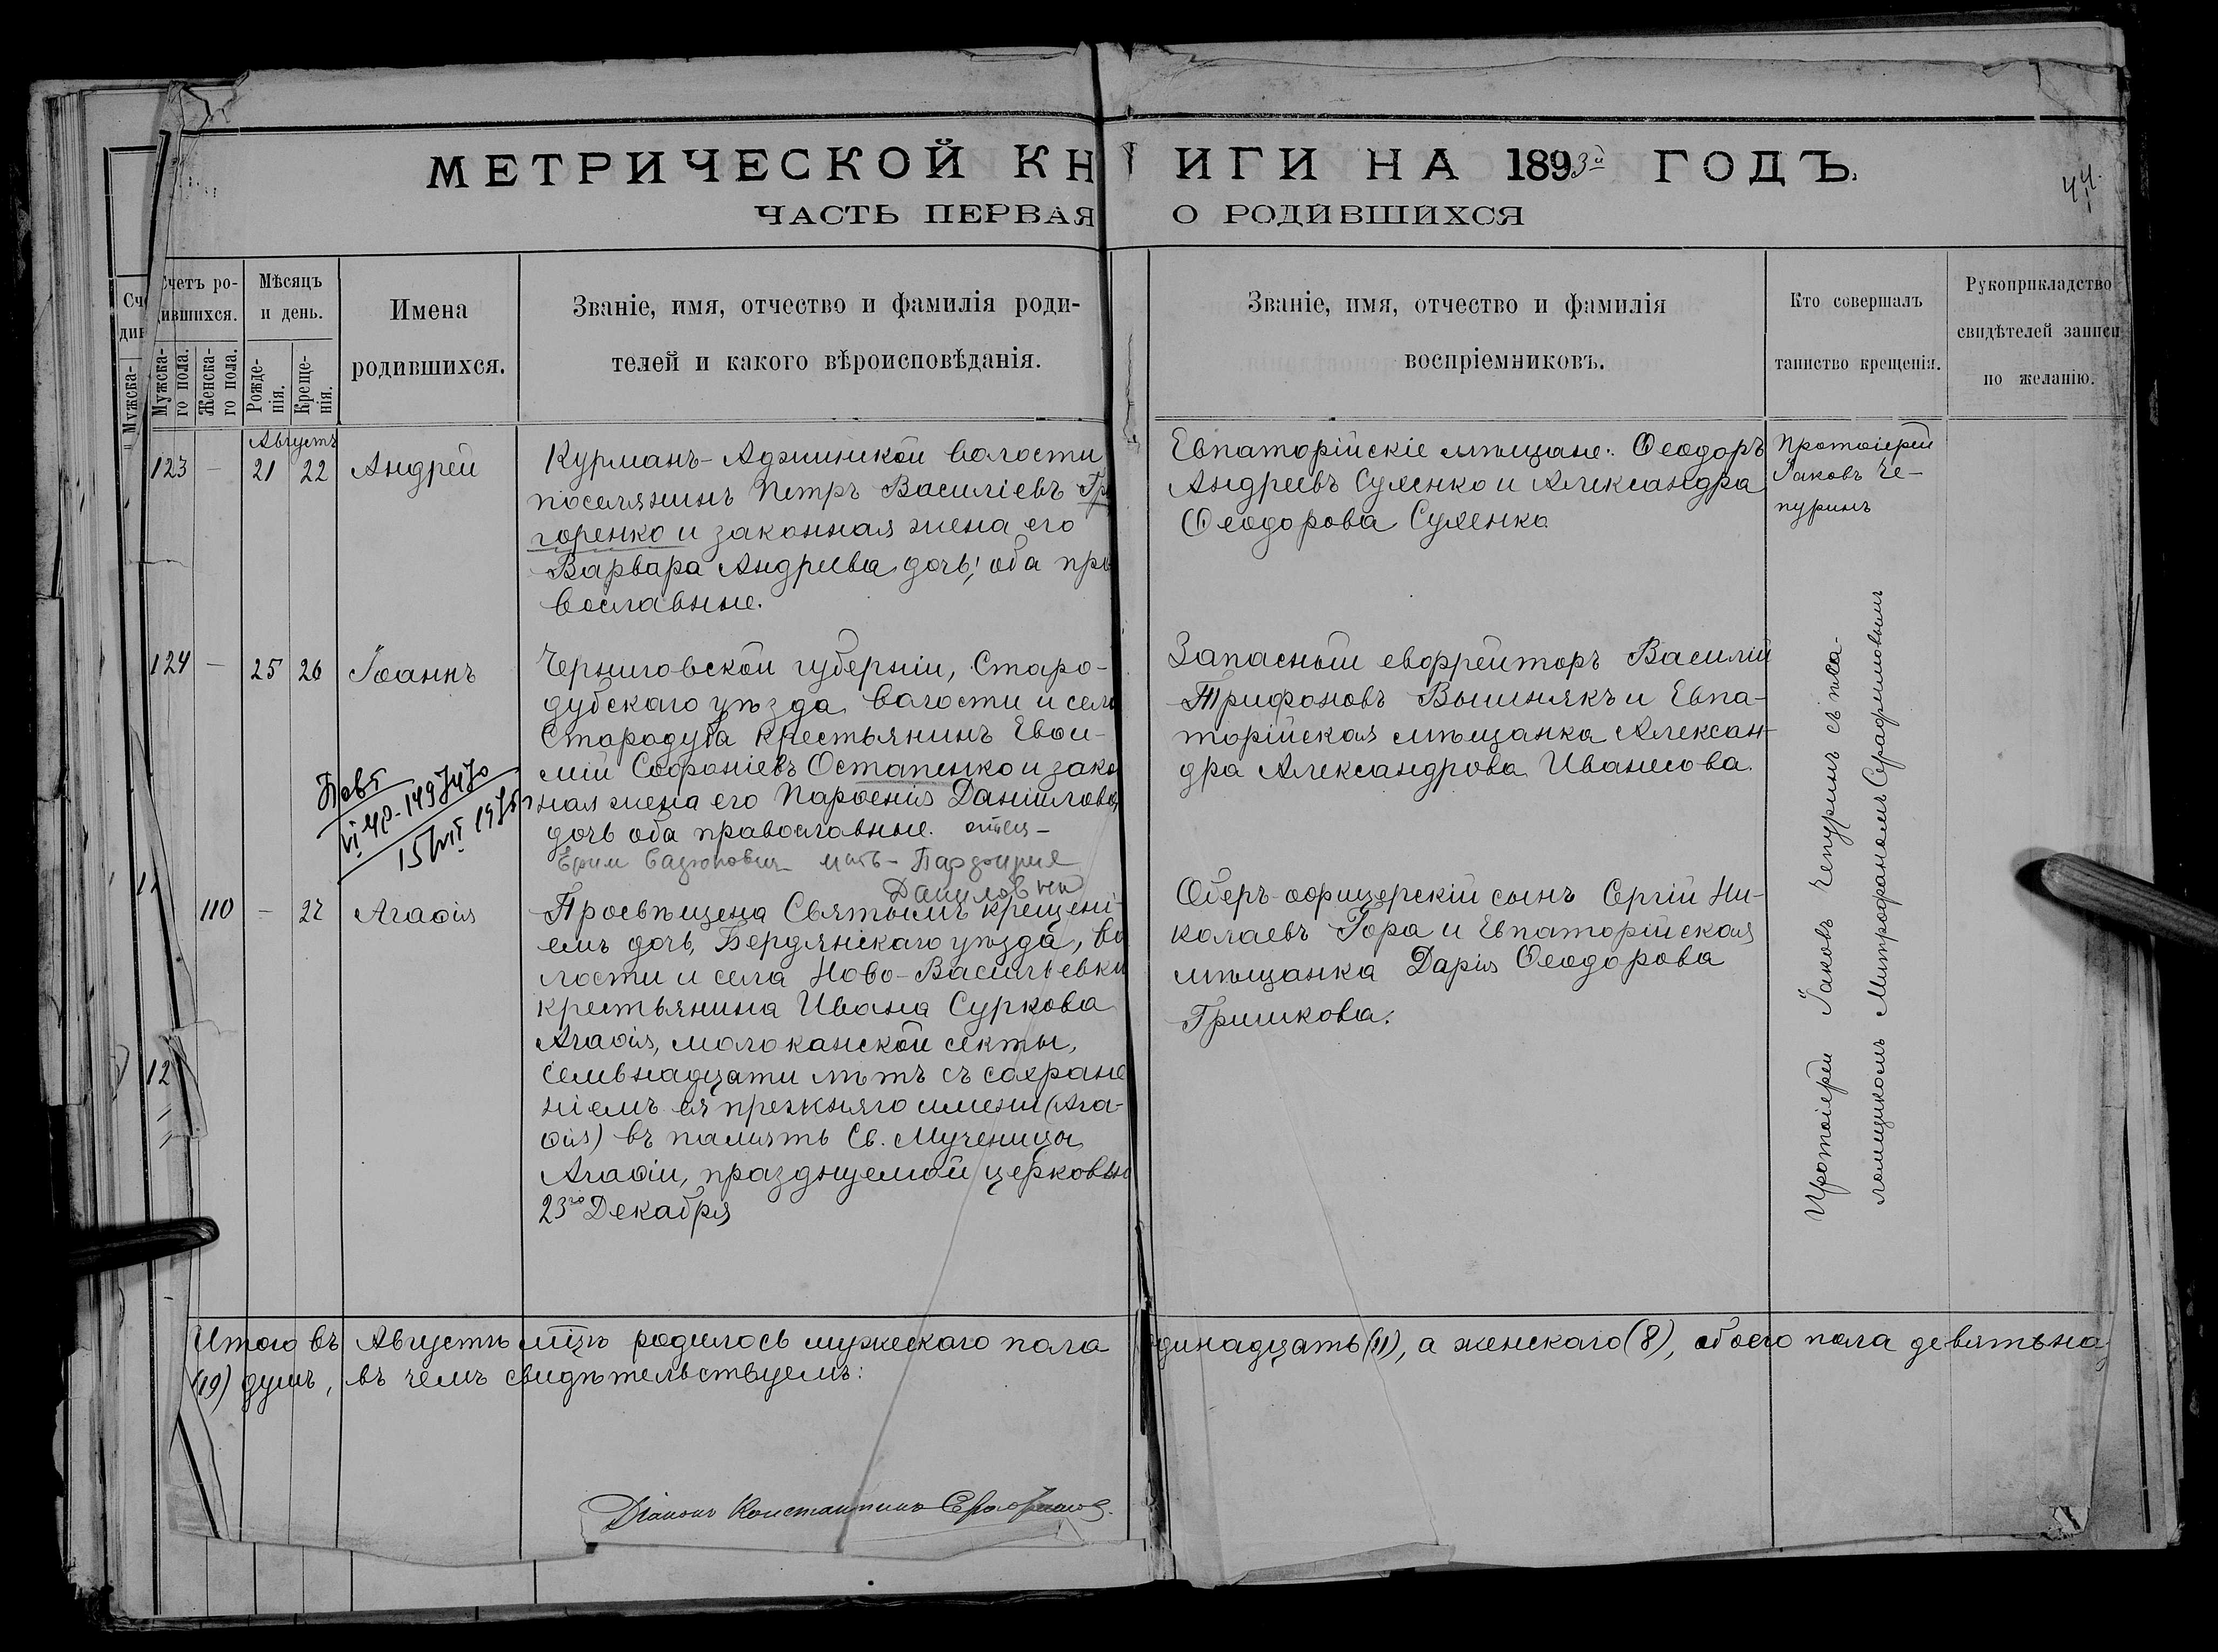 МЕТРИЧЕСКОЙ КНИГИ НА 1893й ГОДЪ.
ЧАСТЬ ПЕРВАЯ О РОДИВШИХСЯ
44.
Счетъ родившихся.
Мужскаго пола.
Женскаго пола.
Мѣсяцъ и день.
Рожденія.
Крещенія.
Имена
родившихся.
Званіе, имя, отчество и фамилія роди-
телей и какого вѣроисповѣданія.
Званіе, имя, отчество и фамилія
воспріемниковъ.
Кто совершалъ
таинство крещенія.
Рукоприкладство
свидѣтелей записи
по желанію.
Августъ
123 – 21 22 Андрей
Курманъ-Аджинской волости
поселянинъ Петръ Василіевъ Гри
горенко и законная жена его
Варвара Андреева дочь; оба пра
вославные.
Евпаторійскіе мѣщане: Ѳеодоръ
Андреевъ Суленко и Александра
Ѳеодорова Суленко
Протоіерей
Іаковъ Че-
пуринъ
124 – 25 26 Іоаннъ
Черниговской губерніи, Старо-
дубскаго уѣзда волости и села
Стародуба крестьянинъ Евѳи-
мій Софоніевъ Остапенко и закон
ная жена его Парѳенія Даніилова
дочь оба православные. отец-
Ефим мать-
Даниловна
15/VII 1975
Запасной ефрейторъ Василій
Трифоновъ Вышнякъ и Евпа-
торійская мѣщанка Алексан-
дра Александрова Иванесова.
110 – 22 Агаѳія
Просвѣщена Святымъ крещені-
емъ дочь, Бердянскаго уѣзда, во
лости и села Ново-Васильевки
крестьянина Ивана Суркова
Агаѳія, молоканской секты,
семьнадцати лѣтъ съ сохране
ніемъ ея прежняго имени (Ага-
ѳія) въ память Св. Мученицы
Агаѳіи, празднуемой церковью
23го Декабря
Оберъ-офицерскій сынъ Сергій Ни-
колаевъ Гора и Евпаторійская
мѣщанка Дарія Ѳеодорова
Гришкова.
Протоіерей Іаковъ Чепуринъ съ пса-
ломщикомъ Митрофаномъ Серафимовымъ
Итого въ Августѣ мцѣ родилось мужескаго пола одинадцать (11), а женскаго (8), обоего пола девятьнад
(19) душъ, въ чемъ свидѣтельствуемъ:
Діаконъ Константинъ